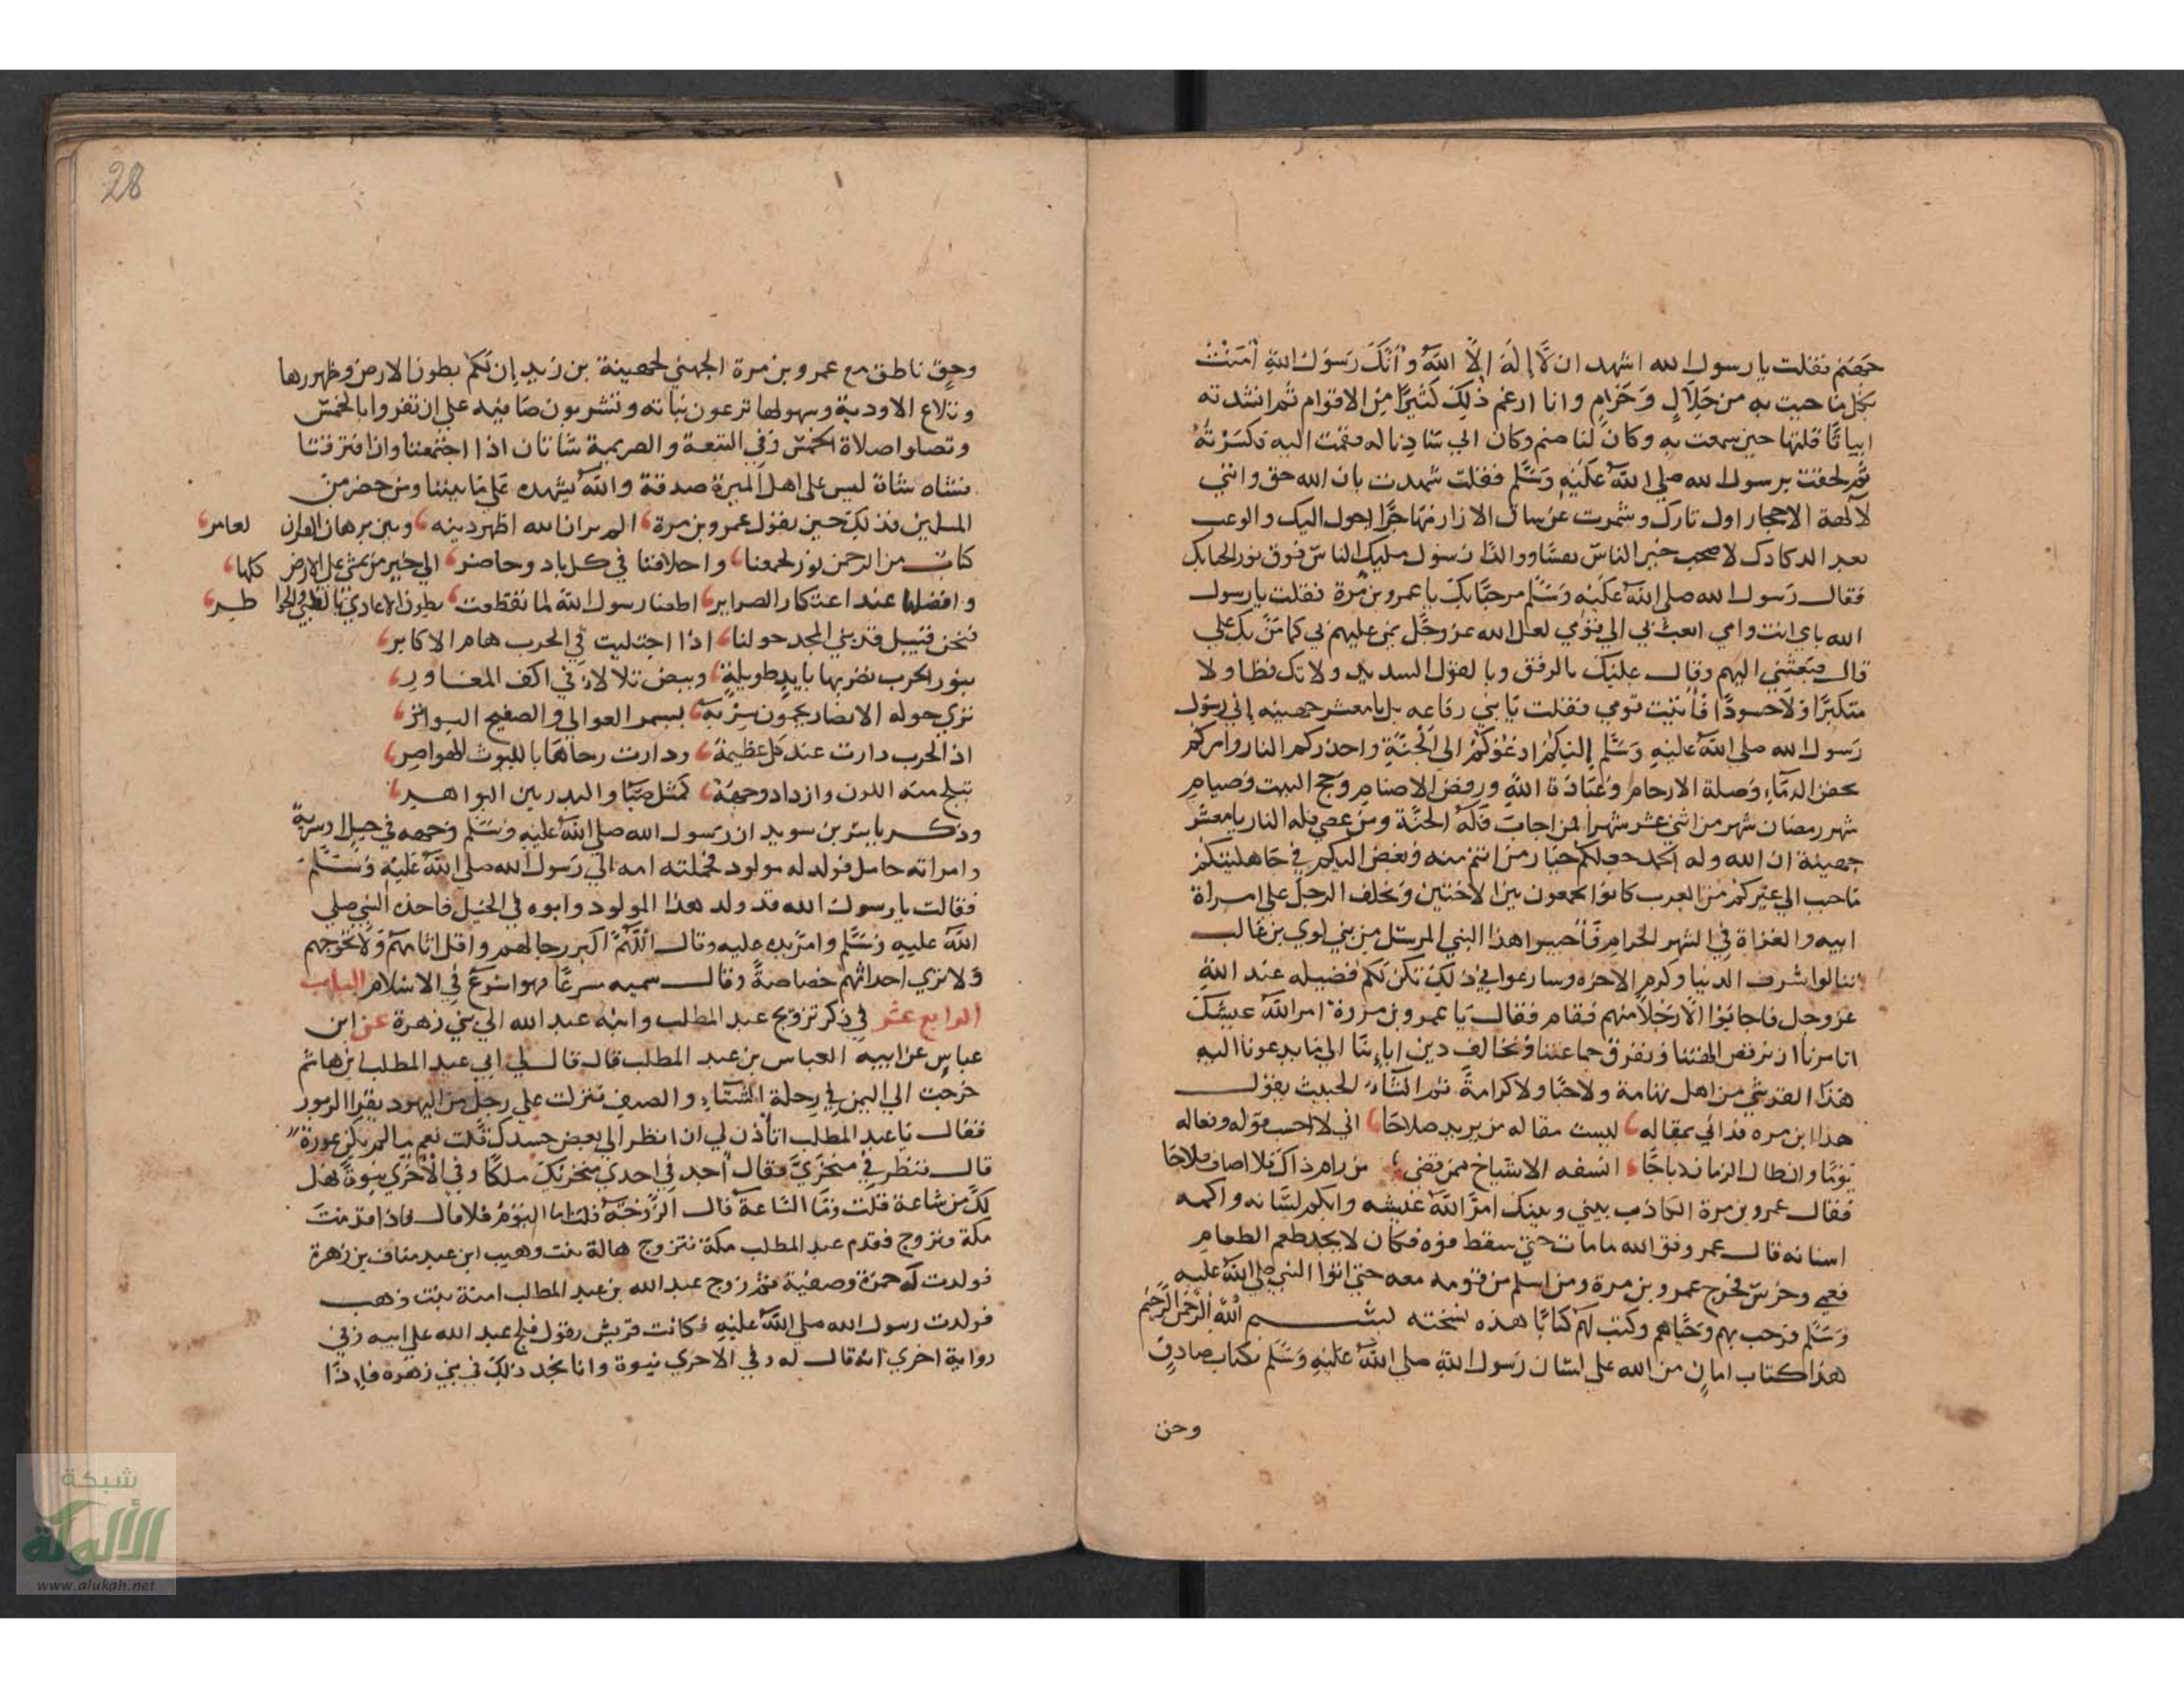 جهنم فقلت يا رسول الله اشهد ان لَّا إِلَهَ إِلَّا اللَّهُ وَأَنَّكَ رَسُولُ اللَّهِ آمَنْتُ
بكل ما جيت به من حَلَالٍ وَحَرَامٍ وانا ارغم ذٰلِكَ كَثِيرًا مِنَ الاقوام ثم انشدته
ابياتًا قلتها حين سمعت به وكان لنا صنم وكان ابي سَادِنا له فقمت اليه فكَسَرْتُهُ
ثم لحقت برسول الله صلى اللَّه عَلَيْهِ وَسَلَّم فقلت شهدت بان الله حق وانني
لآلهة الاحجار اول تارك وشمرت عن ساق الازار مهاجرًا اجول اليك والوعب
بعد الدكادك لا صحب خير الناس نفسًا ووالدًا رسول مليك الناس فوق الحبايك
فقال رَسول الله صلى اللَّهُ عَلَيْهِ وَسَلَّم مرحبًا بك يا عمرو بن مُرة فقلت يا رسول
الله بابي انت وامي ابعث بي الي قومي لعل الله عز وجَل يمن عليهم بي كما مَنَّ بك علي
قال فبَعَثَنِي اليهم وقال عليك بالرفق وبالقول السديد ولا تك فظا ولا
متكبرًا ولا حسودًا فأتيت قومي فقلت يَا بني رفاعه بل يا معشر جهينه إني رسول
رَسول الله صلى اللَّهُ عَلَيْهِ وَسَلَّم إليكُم ادعُوكُمْ الى الجنَّةِ واحذركم النار وآمركم
بحقن الدمَاءِ وَصلة الارحام وعبَادَة اللَّهِ ورفض الاصنام وَحج البيت وَصيام
شهر رمضان شهر من اثني عشر شهرا فمن اجابَ فَلَهُ الجنَّة ومن عصي فله النار يا معشر
جهينة ان الله وله الحمد جعلكم خيار من انتم منه وبغض اليكم في جَاهليتكُمْ
مَا حبب الي غيركُمْ من العرب كانوا يجمعون بين الاختين وَيخلف الرجل على امراة
ابيه والغزاة في الشهر الحرام فَأجيبوا هذا النبي المرسَل من بني لوي بن غالب
تنالوا شرف الدنيا وكرم الاخرة وسارعوا في ذلِكَ تكن لَكُم فضيله عند اللَّهِ
عز وجل فاجابوا الَّا رَجُلًا منهم فقام فقال يا عمرو بن مرة امرّ اللَّه عيشكَ
اتامرنا ان نرفض الهتنا وَنفرق جماعتنا وَنخالف دين ابَائِنَا الي مَا يدعونا اليه
هذَا القرشي من اهل تهامة ولا حبًا ولا كرامةً ثم انشَأ الخبيث يقول
هذا ابن مره قد اتي بمقاله، ليست مقاله من يريد صلاحا، اني لاحسب قوله وفعاله
يَومًا وان طال الزمان ذباحًا، اتسفه الاشياخ ممن قضي، من رام ذاك فلا اصاب فلاحَا
فقال عمرو بن مرة الكاذب بيني وبينك امرَّ اللَّه عَيشه وابكم لسَانه واكمه
اسنانه قال عمرو فو الله ما مات حتي سقط فوه فكان لا يجد طعم الطعام
فعمي وخرس فخرج عمرو بن مرة ومن اسلم من قومه معه حتى اتوا النبي صلى اللَّه عليه
وَسَلَّم فرحب بهم وَحَيَّاهم وكتب لَهُم كتابًا هذه نسخته بسم اللَّه الرَّحْمَنِ الرَّحِيم
هذا كتاب امانٍ من الله على لسَان رَسول اللَّهِ صلى اللَّهُ عَلَيْهِ وَسَلَّم بكتاب صادقٍ
وحق
28
وحقٍ ناطق مع عمرو بن مرة الجهني لجهينة بن زيد إن لكُم بطون الارض وظهورها
وتلاع الاودية وسهولها ترعون نباته وتشربون صافيه على ان تقروا بالخمس
وتصلوا صلاة الخمس وَفي التيعة والصريمة شاتان اذا اجتمعتا وان افترقتا
فشاه شاة ليس على اهل الميرة صدقة واللَّه يشهد عَلي مَا بيننا ومن حضر من
المسلمين فذلِكَ حين يقول عمرو بن مرة، الم تر ان الله اظهر دينه، وبين برهان القران لعامر،
كتاب من الرحمن نور لجمعنا، واحلافنا في كل باد وحاضر، الي خير من يمشي على الارض كلها،
وافضلها عند اعتكار الضراير، اطعنا رسول اللَّه لما تقطعت، بطون الاعادي بالظبي والخوا طر،
فنحن قبيل قد بني المجد حولنا، اذا اجتليت في الحرب هام الاكابر،
بنو الحرب نضربها بايدٍ طويلةٍ، وبيض تلالأ في اكف المغاور،
تري حوله الانصار يحمون سربه، بسمر العوالي والصفيح البواتر،
اذ الحرب دارت عند كل عظيمة، ودارت رحاهَا بالليوث الهواصر،
تبلج منه اللون وازداد وجهه، كمثل ضيا والبدر بين البواهر،
وذكر ياسر بن سويد ان رَسول الله صلى اللَّهُ عَلَيْهِ وَسَلَّم وجهه في خيل او سرية
وامراته حامل فولد له مولود فحملته امه الي رَسول الله صلى اللَّهُ عَلَيْهِ وَسَلَّمَ
فقالت يا رسول الله قد ولد هذا المولود وابوه في الخيل فاخذه النبي صلى
اللَّه عليهِ وَسَلَّم وامرّ يده عليه وقال اللَّهُمَّ اكبر رجالهم واقل اياماهُم وَلا تحوجهم
وَلا تري احدًا منهم خصاصةً وقال سميه سرعًا فهو اسْرَع في الاسلام الباب
الرابع عشر في ذكر تزويج عبد المطلب وابنه عبد الله الي بني زهرة عن ابن
عباسٍ عن ابيه العباس بن عبد المطلب قال قال لي ابي عبد المطلب بن هاشم
خرجت الي اليمن في رحلة الشتَاءِ والصيف فنزلت على رجل من اليهود يقرا الزبور
فقال يَا عبد المطلب اتأذن لي ان انظر الي بعض جسدك قلت نعم مالم يكن عورة
قال فنظر في منخرَيَّ فقال أجد في احدي منخريكَ ملكًا وفي الاخري نبوةً فهل
لكَ من شاعة قلت وَمَا الشاعة قال الزوجه قلت اما اليَومُ فلا قال فاذا قدمتَ
مكة فتزوج فقدم عبد المطلب مكة فتزوج هالة بنت وهيب ابن عبد مناف بن زهرة
فولدت له حمزة وصفية ثم زوج عبد الله بن عبد المطلب امنة بنت وهب
فولدت رسول الله صلى اللَّهُ عَلَيْهِ فكانت قريش يقول فلج عبد الله على ابيه وَفي
رواية اخري انه قال له وفي الاخري نبوة وانا نجد ذلِكَ في بني زهره فإذا
شبكة
الألوكة
www.alukah.net